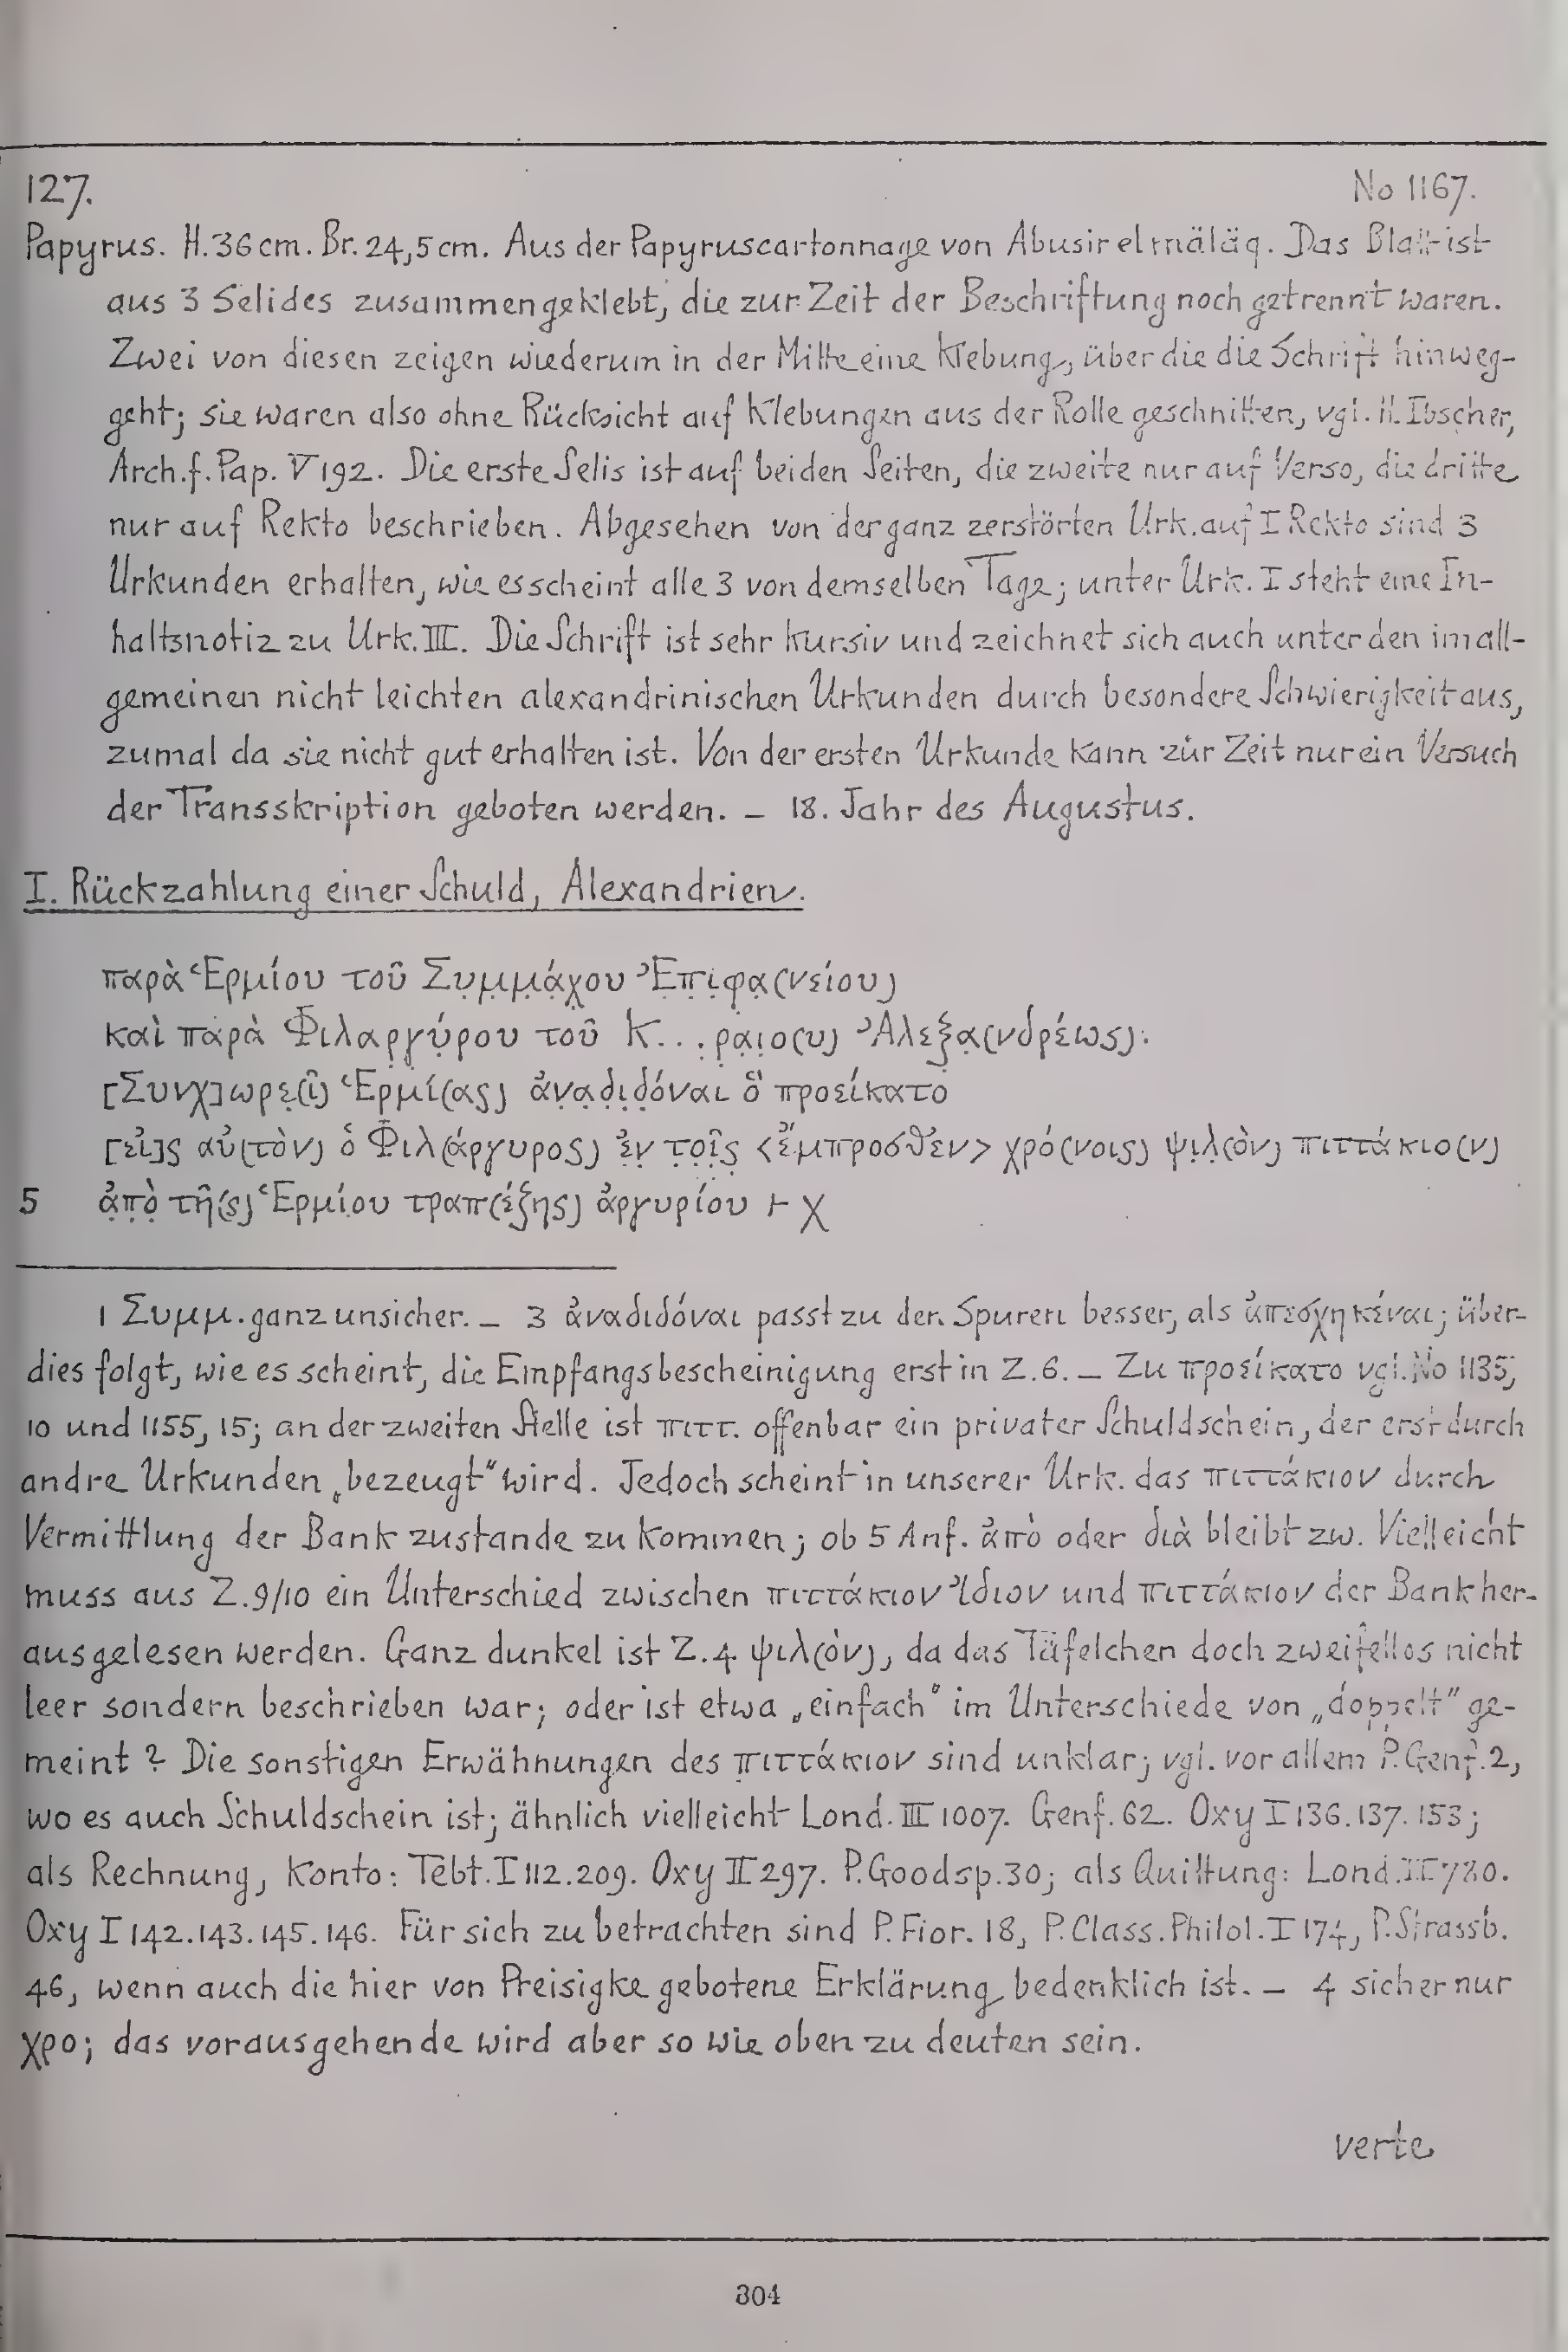 127.
No 1167.
Papyrus. H. 36 cm. Br. 24,5 cm. Aus der Papyruscartonnage von Abusir el mäläq. Das Blatt ist
aus 3 Selides zusammengeklebt, die zur Zeit der Beschriftung noch getrennt waren.
Zwei von diesen zeigen wiederum in der Mitte eine Klebung, über die die Schrift hinweg-
geht; sie waren also ohne Rücksicht auf Klebungen aus der Rolle geschnitten, vgl. H. Ibscher,
Arch. f. Pap. V 192. Die erste Selis ist auf beiden Seiten, die zweite nur auf Verso, die dritte
nur auf Rekto beschrieben. Abgesehen von der ganz zerstörten Urk. auf I Rekto sind 3
Urkunden erhalten, wie es scheint alle 3 von demselben Tage; unter Urk. I steht eine In-
haltsnotiz zu Urk. III. Die Schrift ist sehr kursiv und zeichnet sich auch unter den im all-
gemeinen nicht leichten alexandrinischen Urkunden durch besondere Schwierigkeit aus,
zumal da sie nicht gut erhalten ist. Von der ersten Urkunde kann zur Zeit nur ein Versuch
der Transskription geboten werden. – 18. Jahr des Augustus.
I. Rückzahlung einer Schuld, Alexandrien.
παρὰ Ἑρμίου τοῦ Σ̣υ̣μ̣μ̣ά̣χ̣ου Ἐπ̣ι̣φα̣(νείου)
καὶ παρὰ Φιλαρ̣γύ̣ρου τοῦ Κ. . . ρ̣α̣ι̣ο(υ) Ἀλεξα̣(νδρέως)·
[Συνχ]ωρε̣(ῖ) Ἑρμί(ας) ἀ̣ν̣α̣δ̣ι̣δ̣όναι ὃ προείκατο
[εἰ]ς αὐ(τὸν) ὁ Φιλ(άργυρος) ἐ̣ν τ̣ο̣ῖ̣ς̣ <ἔμπροσθεν> χρό(νοις) ψι̣λ̣(ὸν) πιττάκιο(ν)
5 ἀ̣π̣ὸ̣ τῆ(ς) Ἑρμίου τραπ(έζης) ἀ̣ργυρίου ⊢ χ
1 Συμμ. ganz unsicher. – 3 ἀναδιδόναι passt zu den Spuren besser, als ἀπεσχηκέναι; über-
dies folgt, wie es scheint, die Empfangsbescheinigung erst in Z. 6. – Zu προείκατο vgl. No 1135,
10 und 1155, 15; an der zweiten Stelle ist πιττ. offenbar ein privater Schuldschein, der erst durch
andre Urkunden „bezeugt“ wird. Jedoch scheint in unserer Urk. das πιττάκιον durch
Vermittlung der Bank zustande zu kommen; ob 5 Anf. ἀπὸ oder διὰ bleibt zw. Vielleicht
muss aus Z. 9/10 ein Unterschied zwischen πιττάκιον ἴδιον und πιττάκιον der Bank her-
ausgelesen werden. Ganz dunkel ist Z. 4 ψιλ(ὸν), da das Täfelchen doch zweifellos nicht
leer sondern beschrieben war; oder ist etwa „einfach“ im Unterschiede von „doppelt“ ge-
meint? Die sonstigen Erwähnungen des πιττάκιον sind unklar; vgl. vor allem P. Genf. 2,
wo es auch Schuldschein ist; ähnlich vielleicht Lond. III 1007. Genf. 62. Oxy I 136. 137. 153;
als Rechnung, Konto: Tebt. I 112. 209. Oxy II 297. P. Goodsp. 30; als Quittung: Lond. II 780.
Oxy I 142. 143. 145. 146. Für sich zu betrachten sind P. Fior. 18, P. Class. Philol. I 174, P. Strassb.
46, wenn auch die hier von Preisigke gebotene Erklärung bedenklich ist. – 4 sicher nur
χρο; das vorausgehende wird aber so wie oben zu deuten sein.
verte
304